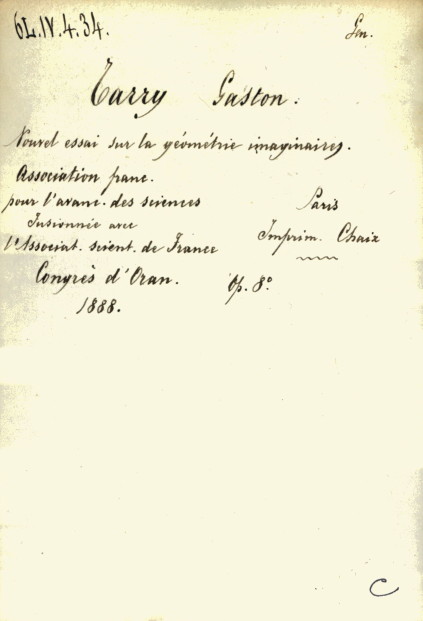 6L.IV.4.34. Gen.
Tarry Gaston.
Nouvel essai sur la géométrie imaginaires.
Association franc.
pour l'avanc. des sciences Paris
Fusionnée avec
l'Associat. scient. de France Imprim. Chaix
Congrès d'Oran. Op. 8º
1888.
C